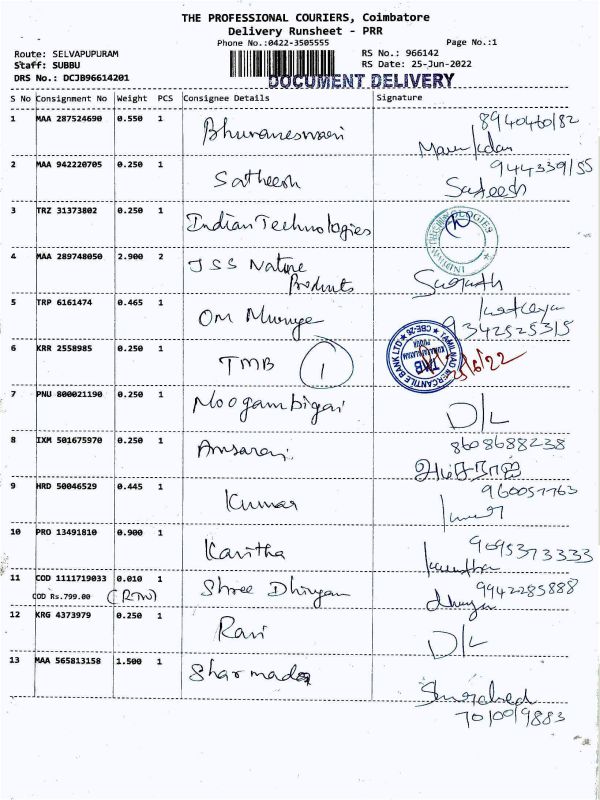 THE PROFESSIONAL COURIERS, Coimbatore
Delivery Runsheet - PRR
Phone No.:0422-3505555
Page No.:1
Route: SELVAPUPURAM
RS No.: 966142
Staff: SUBBU
RS Date: 25-Jun-2022
DRS No.: DCJB96614201
DOCUMENT DELIVERY
S No Consignment No Weight PCS Consignee Details Signature
1 MAA 287524690 0.550 1 Bhuvaneswari
2 MAA 942220705 0.250 1 Satheesh Sateesh
3 TRZ 31373802 0.250 1 Indian Technologies
INDIAN TECHNOLOGIES
4 MAA 289748050 2.900 2 JSS Nature
Products
5 TRP 6161474 0.465 1 OM Muruga
9342525315
6 KRR 2558985 0.250 1 TMB 1
TAMILNAD MERCANTILE BANK LTD CBE-26
TMB
25/6/22
7 PNU 800021190 0.250 1 Moogambigai D/L
8 IXM 501675970 0.250 1 8608688238
9 HRD 50046529 0.445 1 Kumar 960057763
10 PRO 13491810 0.900 1 Kavitha 9095373333
11 COD 1111719033 0.010 1 Shree Dhiryam 9942285888
COD Rs.799.00 (RTN)
12 KRG 4373979 0.250 1 Ravi D/L
13 MAA 565813158 1.500 1 Sharmada
7010019883